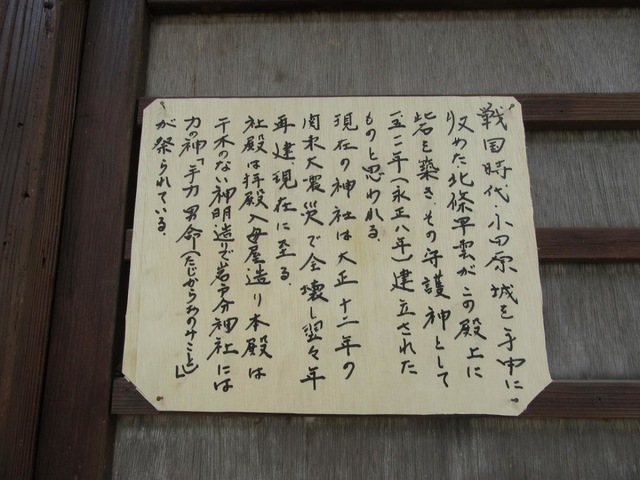 戦国時代・小田原城を手中に
収めた北條早雲がこの殿上に
砦を築き、その守護神として
一五一一年(永正八年)建立された
ものと思われる。
現在の神社は大正十二年の
関東大震災で全壊し翌々年
再建、現在に至る。
社殿は拝殿入母屋造り本殿は
千木のない神明造りで若宮分神社には
力の神「手力男命(たじからおのみこと)」
が祭られている。